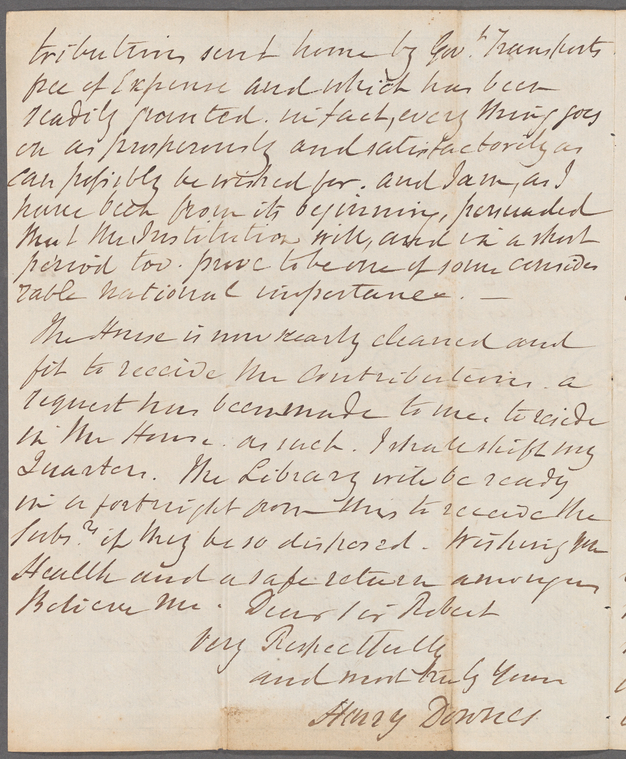 tributions sent home by Gov.t Transports
free of Expense and which has been
readily granted. in fact, every thing goes
on as prosperously and satisfactorily as
can possibly be wished for. and I am, as I
have been from its beginning, persuaded
that the Institution will, and in a short
period too. prove to be one of some conside
rable national importance. —
The House is now nearly cleaned and
fit to receive the Contributions. a
request has been made to me. to reside
in the House. as such. I shall shift my
Quarters. The Library will be ready
in a fortnight from this to receive the
Subs.rs if they be so disposed. Wishing you
Health and a safe return amongus
Believe me. Dear Sir Robert
Very Respectfully
and most truly Yours
Henry Downes